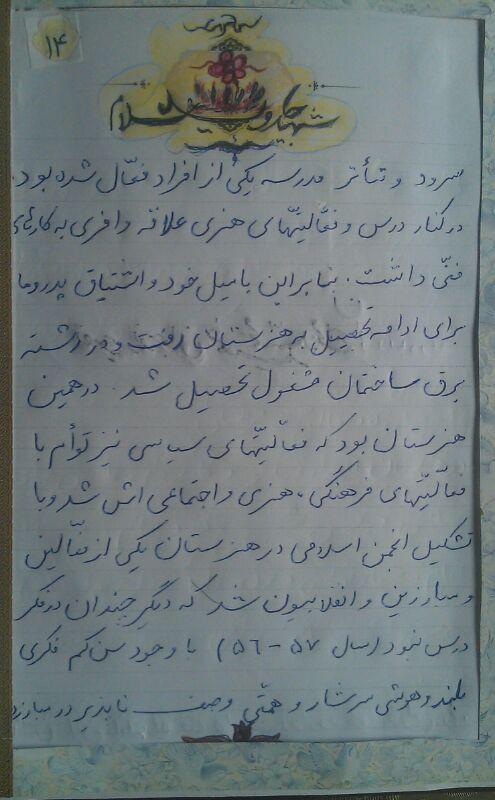 ۱۴
سرود و تئأتر مدرسه یکی از افراد فعّال شده بود.
در کنار درس و فعّالیتهای هنری علاقه وافری به کارهای
فنّی داشت. بنابراین با میل خود و اشتیاق پدر و ما
برای ادامه تحصیل به هنرستان رفت و در رشته
برق ساختمان مشغول تحصیل شد. در همین
هنرستان بود که فعالیّتهای سیاسی نیز توأم با
فعالیّتهای فرهنگی، هنری و اجتماعی اش شد و با
تشکیل انجمن اسلامی در هنرستان یکی از فعّالین
و مبارزین و انقلابیون شد که دیگر چندان در فکر
درس نبود (سال ۵۷ - ۵۶) با وجود سن کم فکری
بلند و هوشی سرشار و همّتی وصف ناپذیر در مبارزه